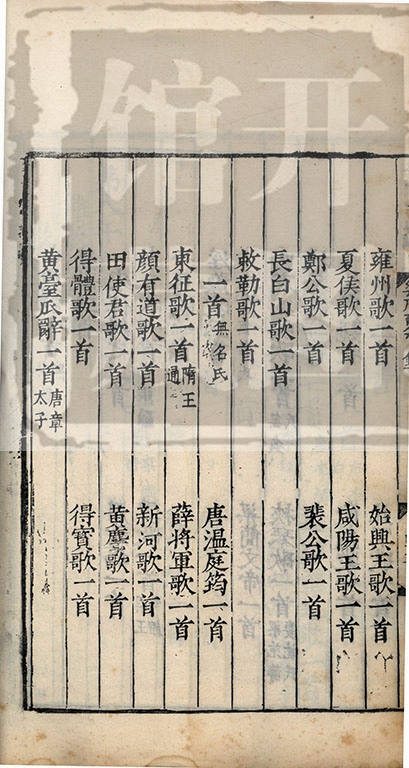 雍州歌一首 始興王歌一首
夏侯歌一首 咸陽王歌一首
鄭公歌一首 裴公歌一首
長白山歌一首
敕勒歌一首
一首無名氏 唐溫庭筠一首
東征歌一首隋王通 薛將軍歌一首
顏有道歌一首 新河歌一首
田使君歌一首 黃麞歌一首
得體歌一首 得寶歌一首
黃臺瓜辭一首唐章太子
开
馆